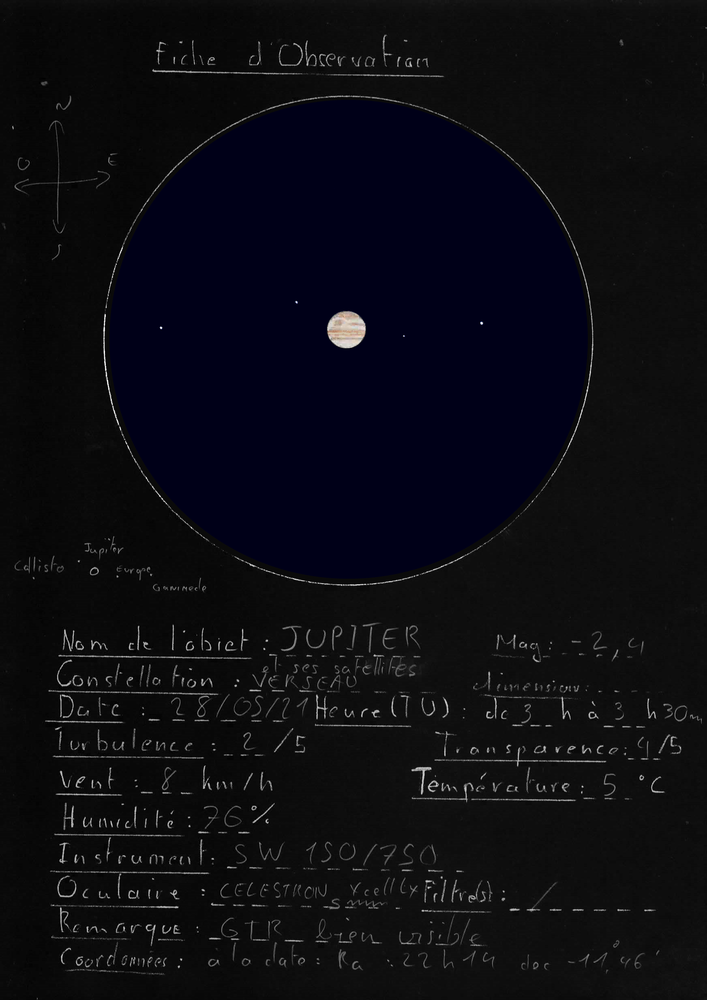 Fiche d'Observation
N
O E
S
Jupiter
Callisto Europe
Ganimede
Nom de l'objet : JUPITER Mag : -2,4
et ses satellites
Constellation : VERSEAU dimension :
Date : 28/05/21 Heure (TU) : de 3 h à 3 h 30m
Turbulence : 2 /5 Transparence : 4/5
Vent : 8 km/h Température : 5 °C
Humidité : 76%
Instrument : SW 150/750
Oculaire : CELESTRON Xcell Lx Filtre(s) : /
5 mm
Remarque : GTR bien visible
Coordonnées : à la date : Ra : 22h14 dec -11°46'